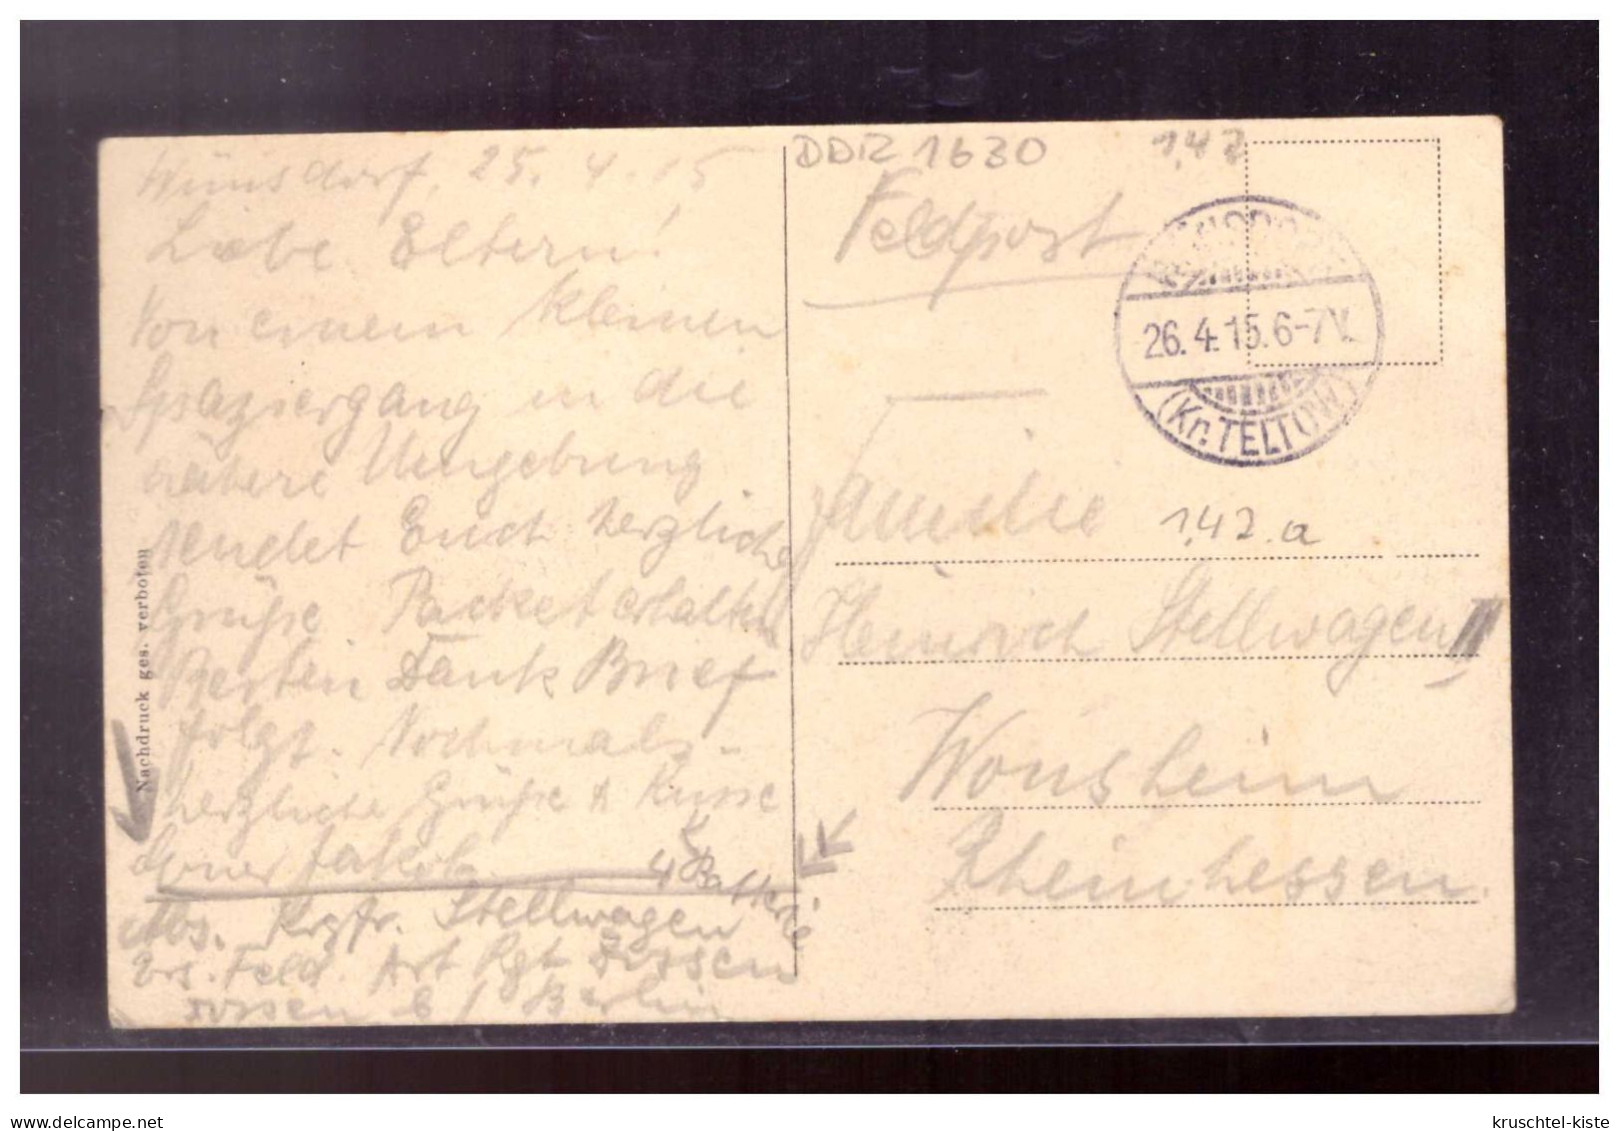 Wünsdorf, 25. 4. 15
Liebe Eltern!
Von einem kleinen
Spaziergang in die
nähere Umgebung
sendet Euch herzliche
Grüße Packet erhalten
Besten Dank Brief
folgt. Nochmals
herzliche Grüße & Küsse
Euer Jakob.
4 Batterie
Abs. Krgfr. Stellwagen
Ers. Feld. Art Rgt Zossen
Zossen b/ Berlin
Nachdruck ges. verboten
DDR 1630
1.42
Feldpost
26.4.15.6-7V.
(Kr. TELTOW)
Familie
1.42.a
Heinrich Stellwagen III
Wonsheim
Rheinhessen.
kruschtel-kiste
www.delcampe.net